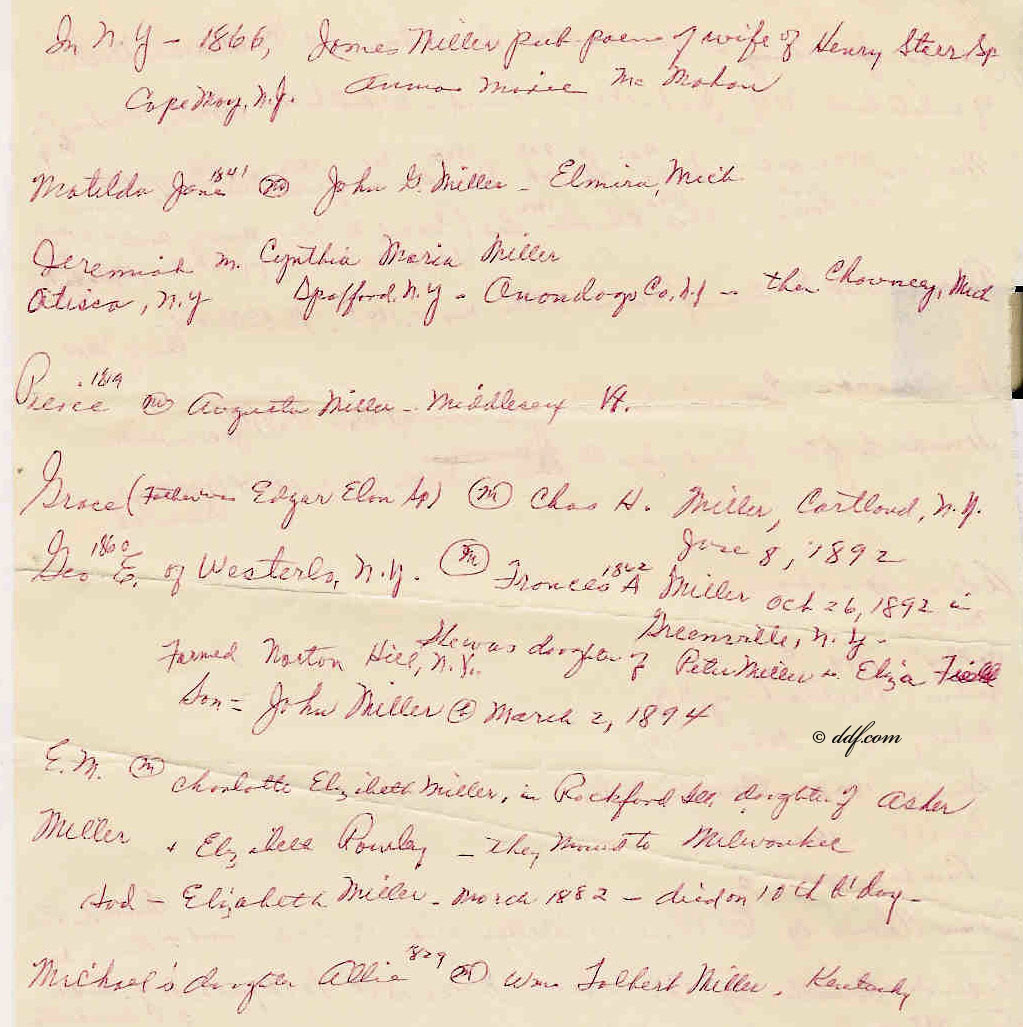 In N.Y - 1866, James Miller pub poems of wife of Henry Sp
Cape May, N.J. Anna Marie Mc Mahon
Matilda Jane 1841 (m) John G. Miller - Elmira, Mich
Jeremiah m. Cynthia Maria Miller
Otisco, N.Y Spafford, N.Y - Onondaga Co, N.Y - then Chowncy, Mich
Pierce 1819 (m) Augusta Miller - Middlesex Vt.
Grace (Father was Edgar Elon Sp) (m) Chas H. Miller, Cortland, N.Y.
June 8, 1892
Geo E. 1860 of Westerlo, N.Y. (m) Frances A 1862 Miller Oct 26, 1892 in
Greenville, N.Y-
Farmed Norton Hill, N.Y. She was daughter of Peter Miller + Eliza
Son = John Miller March 2, 1894
© ddf.com
E.M. (m) Charlotte Elizabeth Miller, in Rockford Ill, daughter of Asher
Miller + Rowley - They moved to Milwaukee
had - Elizabeth Miller - March 1882 - died on 10th b'day-
Michael's daughter Allie 1829 (m) Wm Tolbert Miller, Kentucky